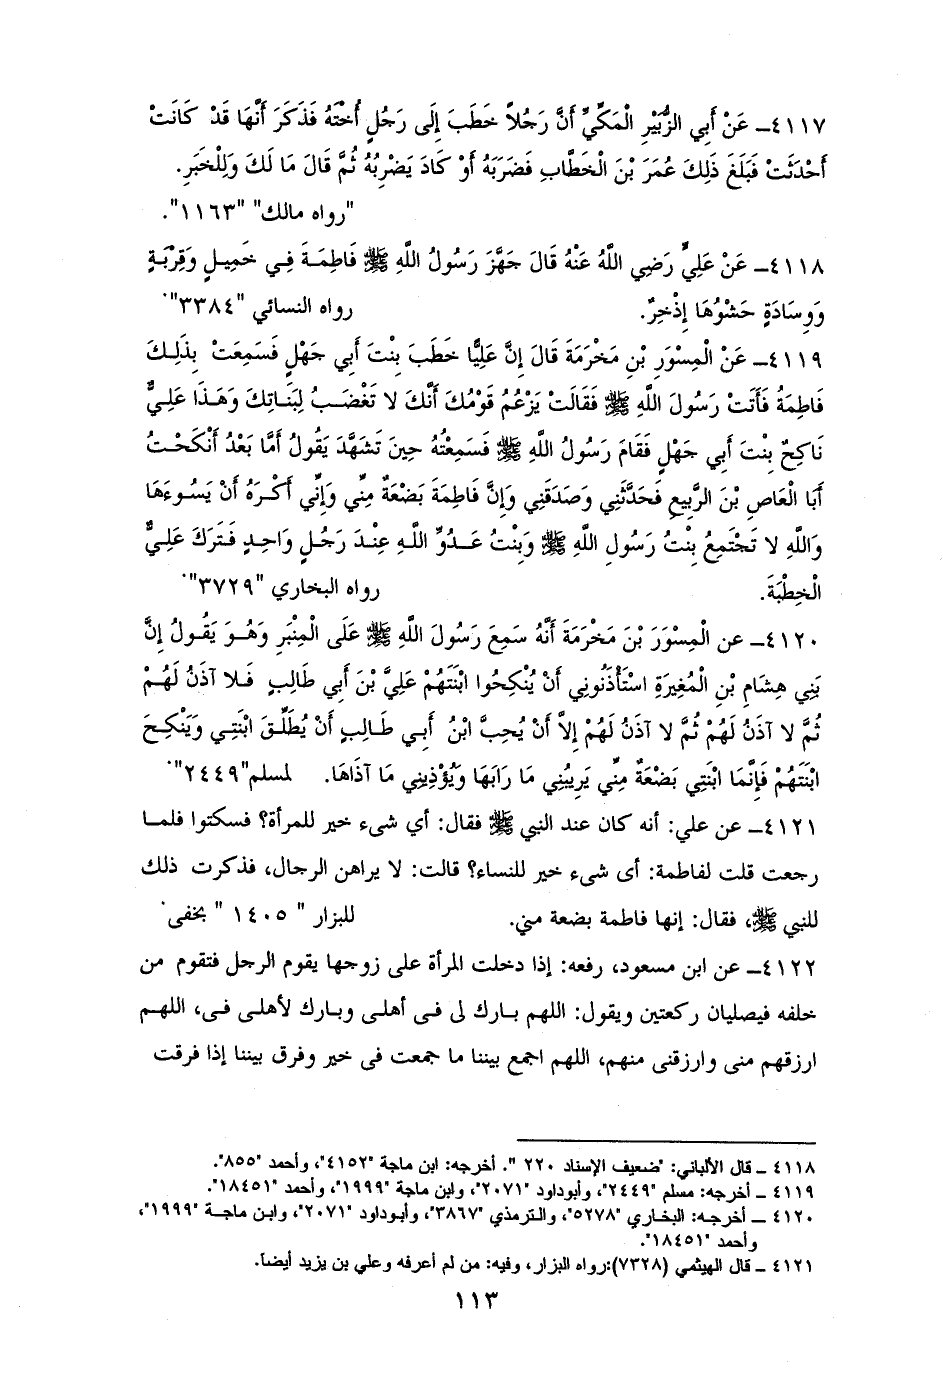 ٤١١٧ـ عَنْ أَبِي الزُّبَيْرِ الْمَكِّيِّ أَنَّ رَجُلاً خَطَبَ إِلَى رَجُلٍ أُخْتَهُ فَذَكَرَ أَنَّهَا قَدْ كَانَتْ
أَحْدَثَتْ فَبَلَغَ ذَلِكَ عُمَرَ بْنَ الْخَطَّابِ فَضَرَبَهُ أَوْ كَادَ يَضْرِبُهُ ثُمَّ قَالَ مَا لَكَ وَلِلْخَبَرِ.
"رواه مالك" "١١٦٣".
٤١١٨ـ عَنْ عَلِيٍّ رَضِي اللَّهُ عَنْهُ قَالَ جَهَّزَ رَسُولُ اللَّهِ ﷺ فَاطِمَةَ فِي خَمِيلٍ وَقِرْبَةٍ
وَوِسَادَةٍ حَشْوُهَا إِذْخِرٌ. رواه النسائي "٣٣٨٤".
٤١١٩ـ عَنْ الْمِسْوَرِ بْنِ مَخْرَمَةَ قَالَ إِنَّ عَلِيًّا خَطَبَ بِنْتَ أَبِي جَهْلٍ فَسَمِعَتْ بِذَلِكَ
فَاطِمَةُ فَأَتَتْ رَسُولَ اللَّهِ ﷺ فَقَالَتْ يَزْعُمُ قَوْمُكَ أَنَّكَ لا تَغْضَبُ لِبَنَاتِكَ وَهَذَا عَلِيٌّ
نَاكِحٌ بِنْتَ أَبِي جَهْلٍ فَقَامَ رَسُولُ اللَّهِ ﷺ فَسَمِعْتُهُ حِينَ تَشَهَّدَ يَقُولُ أَمَّا بَعْدُ أَنْكَحْتُ
أَبَا الْعَاصِ بْنَ الرَّبِيعِ فَحَدَّثَنِي وَصَدَقَنِي وَإِنَّ فَاطِمَةَ بَضْعَةٌ مِنِّي وَإِنِّي أَكْرَهُ أَنْ يَسُوءَهَا
وَاللَّهِ لا تَجْتَمِعُ بِنْتُ رَسُولِ اللَّهِ ﷺ وَبِنْتُ عَدُوِّ اللَّهِ عِنْدَ رَجُلٍ وَاحِدٍ فَتَرَكَ عَلِيٌّ
الْخِطْبَةَ. رواه البخاري "٣٧٢٩".
٤١٢٠ـ عن الْمِسْوَرَ بْنَ مَخْرَمَةَ أَنَّهُ سَمِعَ رَسُولَ اللَّهِ ﷺ عَلَى الْمِنْبَرِ وَهُوَ يَقُولُ إِنَّ
بَنِي هِشَامِ بْنِ الْمُغِيرَةِ اسْتَأْذَنُونِي أَنْ يُنْكِحُوا ابْنَتَهُمْ عَلِيَّ بْنَ أَبِي طَالِبٍ فَلا آذَنُ لَهُمْ
ثُمَّ لا آذَنُ لَهُمْ ثُمَّ لا آذَنُ لَهُمْ إِلاَّ أَنْ يُحِبَّ ابْنُ أَبِي طَالِبٍ أَنْ يُطَلِّقَ ابْنَتِي وَيَنْكِحَ
ابْنَتَهُمْ فَإِنَّمَا ابْنَتِي بَضْعَةٌ مِنِّي يَرِيبُنِي مَا رَابَهَا وَيُؤْذِينِي مَا آذَاهَا. لمسلم"٢٤٤٩".
٤١٢١ـ عن علي: أنه كان عند النبي ﷺ فقال: أي شىء خير للمرأة؟ فسكتوا فلما
رجعت قلت لفاطمة: أى شىء خير للنساء؟ قالت: لا يراهن الرجال، فذكرت ذلك
للنبي ﷺ، فقال: إنها فاطمة بضعة مني. للبزار " ١٤٠٥ " بخفى.
٤١٢٢ـ عن ابن مسعود، رفعه: إذا دخلت المرأة على زوجها يقوم الرجل فتقوم من
خلفه فيصليان ركعتين ويقول: اللهم بارك لى فى أهلى وبارك لأهلى فى، اللهم
ارزقهم منى وارزقنى منهم، اللهم اجمع بيننا ما جمعت فى خير وفرق بيننا إذا فرقت
٤١١٨ ـ قال الألباني: "ضعيف الإسناد ٢٢٠ ". أخرجه: ابن ماجة "٤١٥٢"، وأحمد "٨٥٥".
٤١١٩ ـ أخرجه: مسلم "٢٤٤٩"، وأبوداود "٢٠٧١"، وابن ماجة "١٩٩٩"، وأحمد "١٨٤٥١".
٤١٢٠ ـ أخرجه: البخاري "٥٢٧٨"، والترمذي "٣٨٦٧"، وأبوداود "٢٠٧١"، وابن ماجة "١٩٩٩"،
وأحمد "١٨٤٥١".
٤١٢١ ـ قال الهيثمي (٧٣٢٨):رواه البزار، وفيه: من لم أعرفه وعلي بن يزيد أيضاً.
١١٣